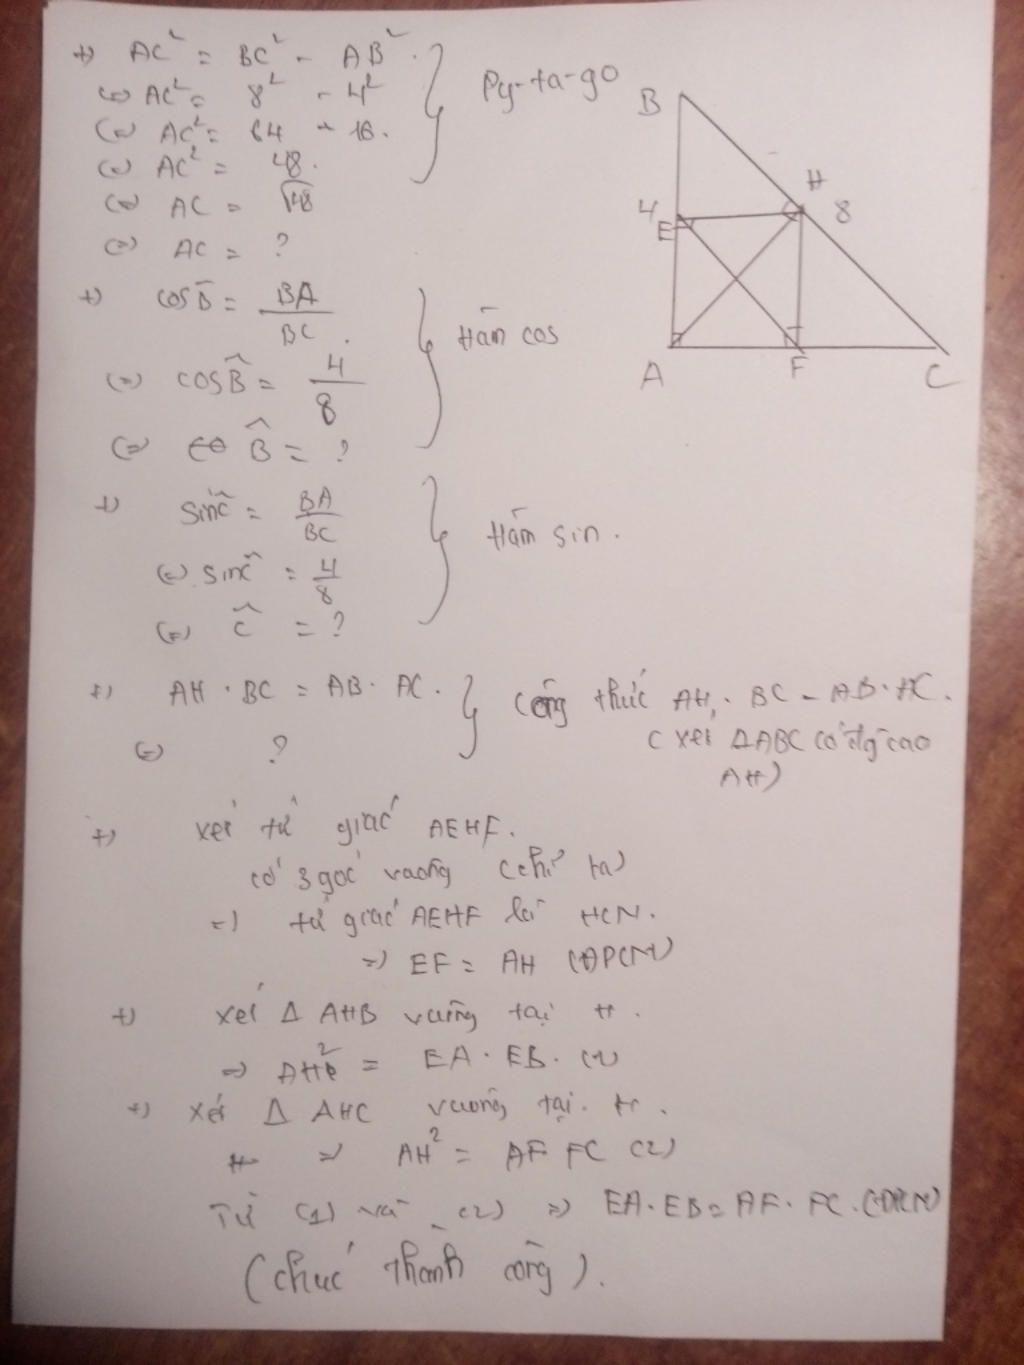 +) AC² = BC² - AB².
(=) AC² = 8² - 4²
(=) AC² = 64 - 16.
(=) AC² = 48.
(=) AC = √48
(=) AC = ?
Py-ta-go
B
H
4
8
E
A
F
C
+) cos B̂ = BA/BC.
(=) cos B̂ = 4/8
(=) B̂ = ?
Hàm cos
+) sin Ĉ = BA/BC
(=) sin Ĉ = 4/8
(=) Ĉ = ?
Hàm sin.
+) AH . BC = AB . AC.
(=) ?
Công thức AH . BC = AB . AC.
(xét ΔABC có đg cao
AH)
+) xét tứ giác AEHF.
có 3 góc vuông (chỉ ra)
=) tứ giác AEHF là HCN.
=) EF = AH (ĐPCM)
+) xét Δ AHB vuông tại H.
=) AH² = EA . EB. (1)
+) xét Δ AHC vuông tại H.
=) AH² = AF FC (2)
Từ (1) và (2) =) EA . EB = AF . FC. (ĐPCM)
(chúc thành công).